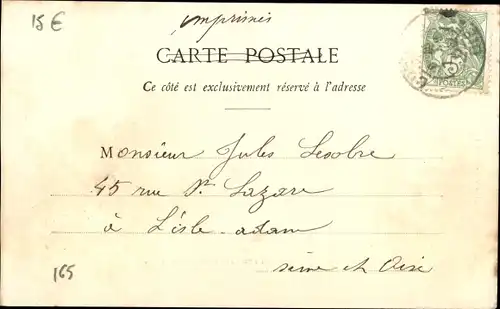 15 €
imprimés
CARTE POSTALE
Ce côté est exclusivement réservé à l'adresse
Monsieur Jules Lesobre
45 rue St. Lazare
à L'isle-adam
seine et Oise
165